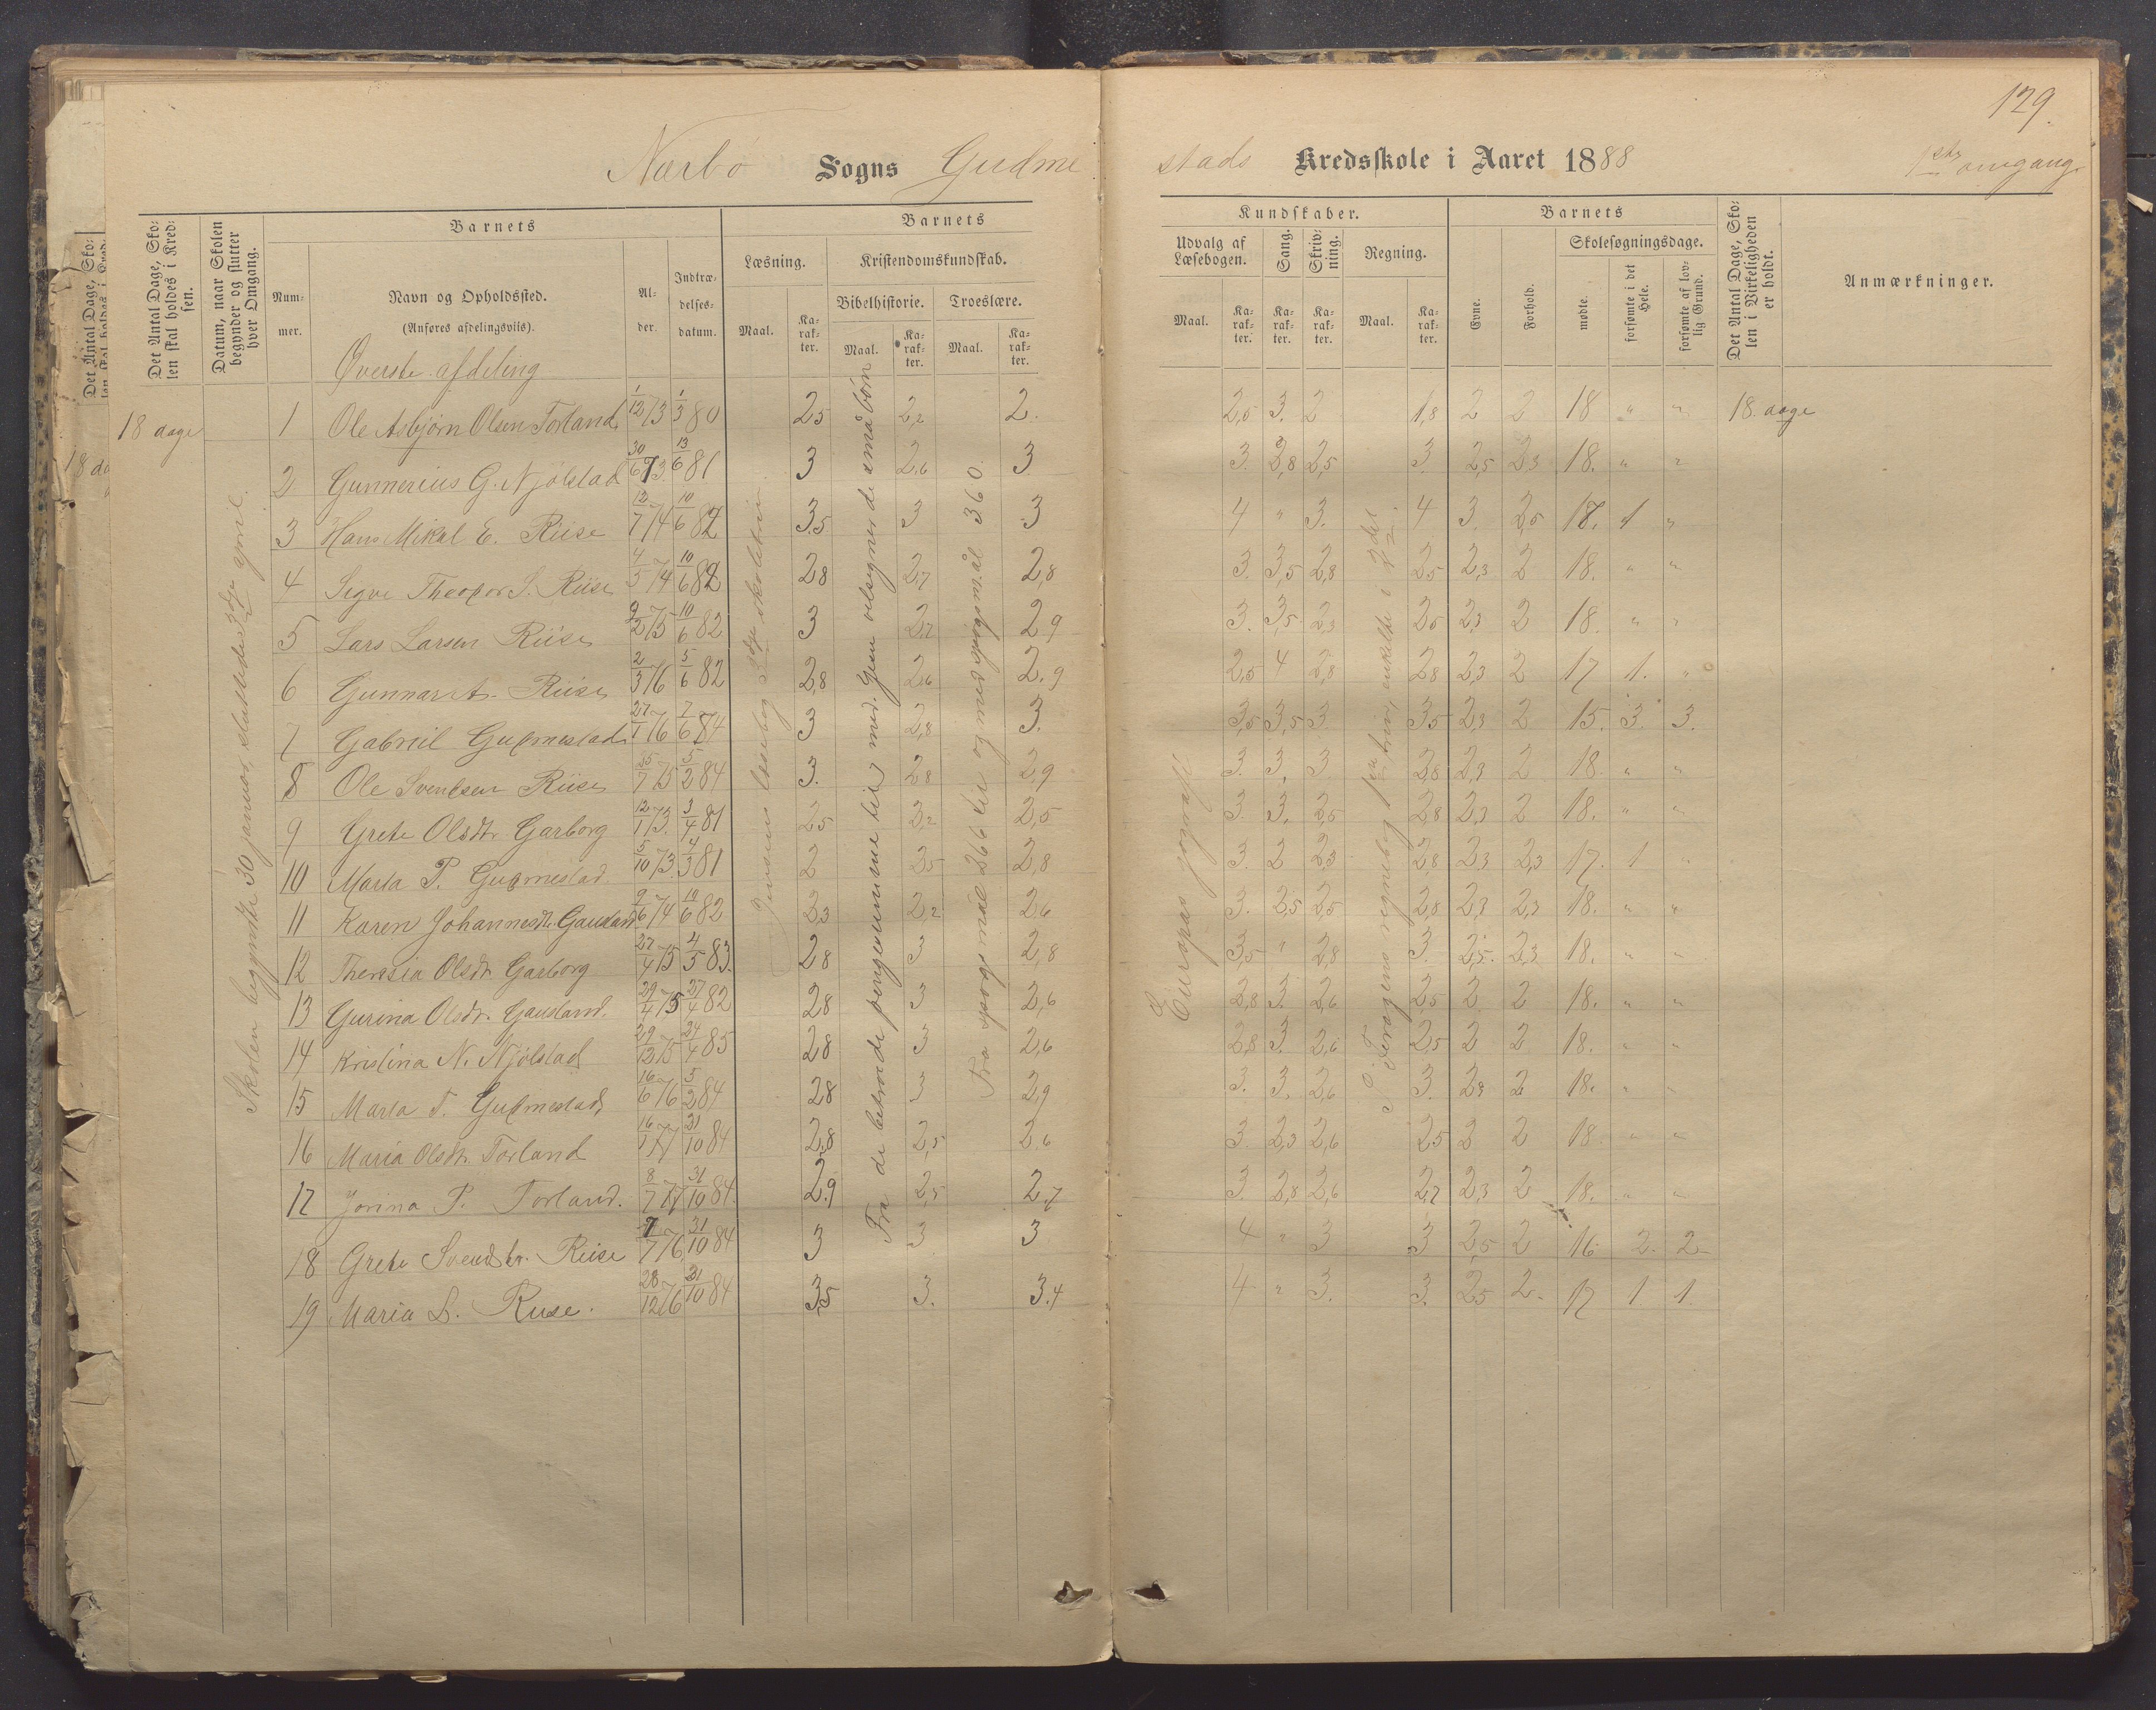 129.
Nærbø Sogns Gudme
stads Kredsskole i Aaret 1888
1ste omgang.
Det Antal Dage, Skolen skal holdes i Kredsen.
Datum, naar Skolen begynder og slutter hver Omgang.
Barnets
Nummer.
Navn og Opholdssted.
(Anføres afdelingsviis).
Alder.
Indtrædelsesdatum.
Barnets
Læsning.
Maal.
Karakter.
Kristendomskundskab.
Bibelhistorie.
Troeslære.
Maal.
Karakter.
Maal.
Karakter.
Kundskaber.
Udvalg af Læsebogen.
Sang.
Skrivning.
Regning.
Maal.
Karakter.
Karakter.
Karakter.
Maal.
Karakter.
Barnets
Evne.
Forhold.
Skolesøgningsdage.
mødte.
forsømte i det Hele.
forsømte af lovlig Grund.
Det Antal Dage, Skolen i Virkeligheden er holdt.
Anmærkninger.
Øverste afdeling
18 dage 1 Ole Asbjørn Olsen Torland 1/12 73 1/3 80 2,5 2,2 2. 2,5 3. 2 1,8 2 2 18 " " 18. dage
2 Gunnerius G. Njølstad 30/6 73 13/6 81 3 2,6 3 3. 2,8 2,5 3. 2,5 2,3 18. " "
3 Hans Mikal E. Riise 12/7 74 10/6 82 3,5 3 3 4 " 3. 4 3. 2,5 17. 1 "
4 Sigve Theodor S. Riise 4/5 74 10/6 82 2,8 2,7 2,8 3. 3,5 2,8 2,5 2,3 2 18. " "
5 Lars Larsen Riise 9/2 75 10/6 82 3 2,7 2,9 3. 3,5 2,3 2,5 2,3 2 18. " "
6 Gunnar A. Riise 2/3 76 5/6 82 2,8 2,6 2,9 2,5 4 2,8 2,8 2,3 2 17 1. "
7 Gabriel Gudmestad 27/1 76 7/6 84 3 2,8 3. 3,5 3,5 3 3,5 2,3 2 15. 3. 3.
8 Ole Svendsen Riise 25/7 75 5/2 84 3. 2,8 2,9 3. 3. 3. 2,8 2,3 2 18. " "
9 Grete Olsdtr. Garborg 12/1 73. 3/4 81 2,5 2,2 2,5 3. 3. 2,5 2,8 2,3 2 18. " "
10 Marta P. Gudmestad. 5/10 73. 4/3 81 2 2,5 2,8 3. 2 2,3 2,8 2,3 2,3 17. 1 "
11 Karen Johannesdt. Gausland 9/6 74 10/6 82 2,3 2,2 2,6 3. 2,5 2,5 2,8 2,3 2,3 18. " "
12 Theresia Olsdt. Garborg 27/4 75 4/5 83. 2,8 3 2,8 3,5 " 2,8 3. 2,5. 2,3 18. " "
13 Gurina Olsdt. Gausland. 29/4 75 27/4 82 2,8 3 2,6 2,8 3. 2,6 2,5 2 2 18. " "
14 Kristina N. Njølstad 29/12 75 24/4 85 2,8 3 2,6 2,8 3. 2,6 2,5 2 2 18. " "
15 Marta T. Gudmestad 16/6 76 5/2 84 2,8 3 2,9 3. 3. 2,6 3. 2,3 2 18. " "
16 Maria Olsdt. Torland 16/1 77 31/10 84 2,8 2,5 2,6 3. 2,3 2,6 2,5 2 2 18. " "
17 Jorina P. Torland. 8/7 77 31/10 84. 2,9 2,5 2,7 3. 2,8 2,6 2,7 2,3 2 18. " "
18 Grete Svendstr. Riise 7/7 76 31/10 84 3 3 3 4 " 3 3 2,5 2 16 2. 2
19 Maria L. Riise. 28/12 76 31/10 84 3,5 3. 3,4 4 " 3. 3. 2,5 2. 17 1. 1
Skolen begyndte 30 januar, sluttede 3dje april.
Jensens læsebog 3dje skoletrin.
Fra de betroede pengesumme til med. Jesu velsigner de små børn
Fra spørgsmål 266 til og med spørgsmål 360.
Europas geografi.